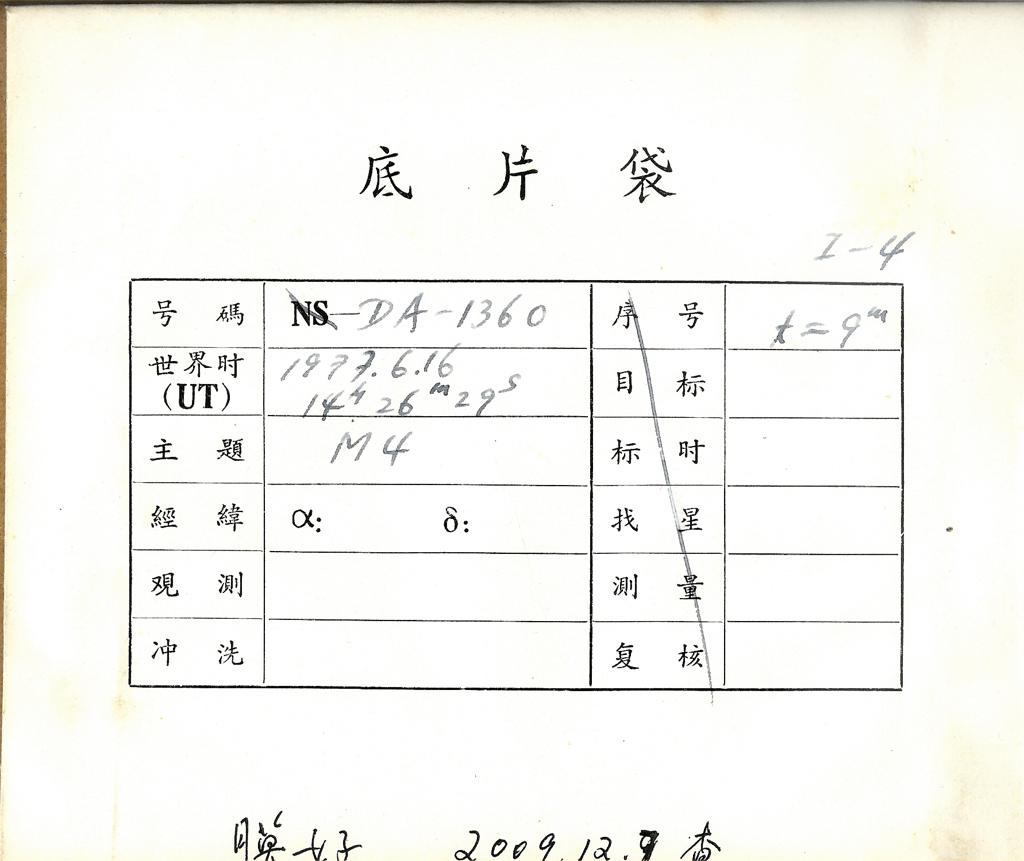 底片袋
I-4
号碼 NS—DA-1360 序号 t=9m
世界时(UT) 1977.6.16 目标
14h 26m 29s
主題 M4 标时
經緯 α: δ: 找星
观測 測量
冲洗 复核
膜好 2009.12.9 查